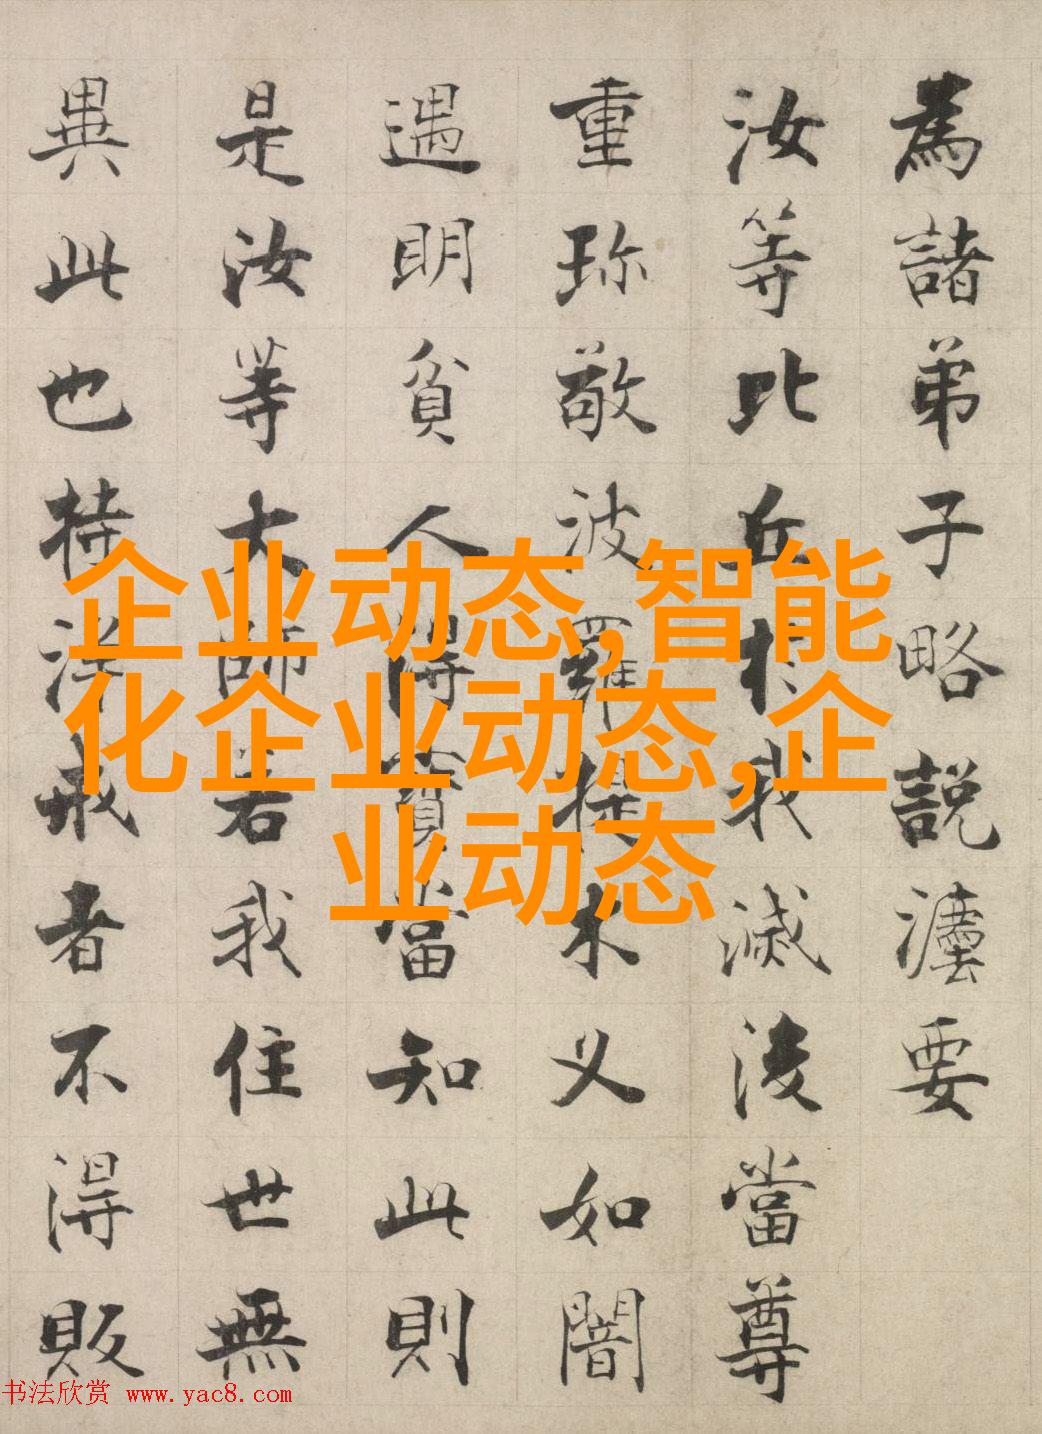 為諸弟子略説要
汝等比丘於我滅後當尊
重珎敬波羅提木叉如闇
遇明貧人得寶當知此則
是汝等大師若我住世無
異此也持淨戒者不得販
企业动态,智能
化企业动态,企
业动态
书法欣赏 www.yac8.com